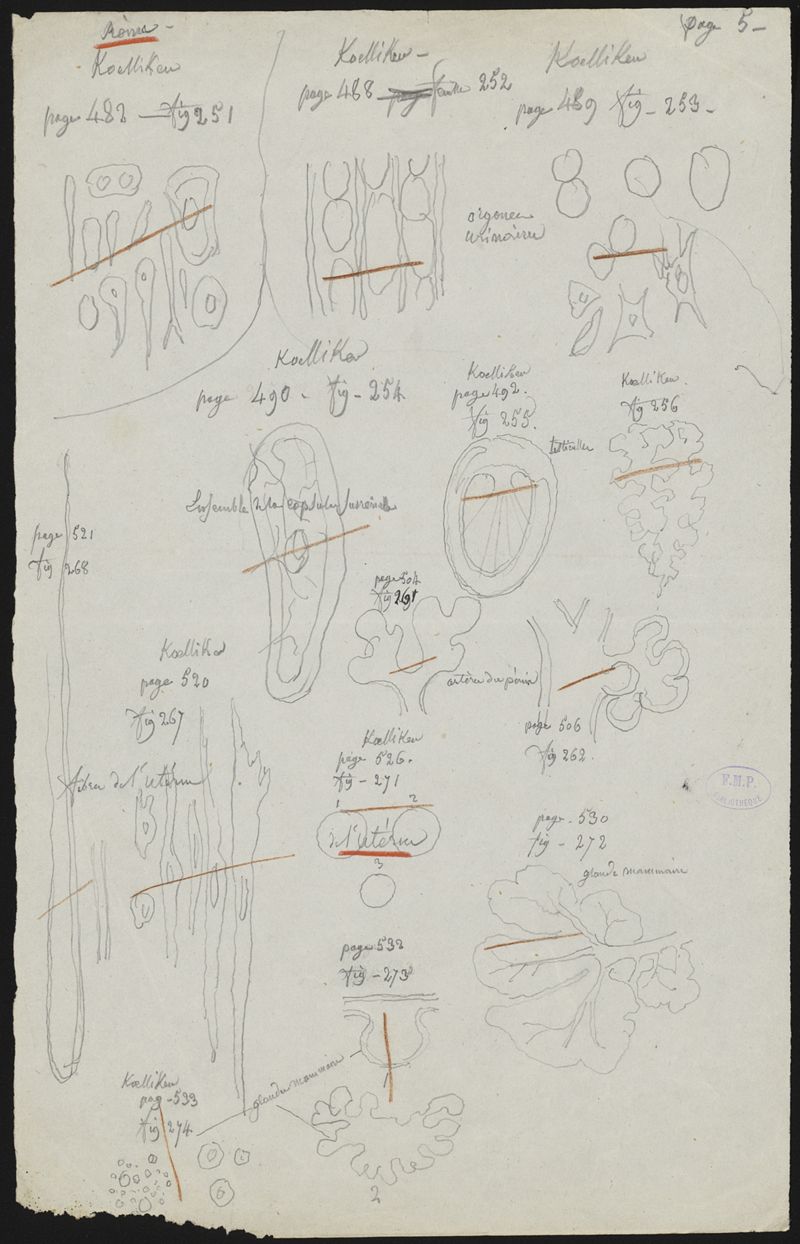 page 5 –
Koelliker
page 482 – fig 251
Koelliker –
page 488 252
Koelliker
page 489 fig – 253 –
organes
urinaires
Koelliker
page 490 – fig – 254
Koelliker
page 492.
fig 255.
Koelliker.
fig 256
testicules
Ensemble de la capsule surrénale
page 521
fig 268
page 504
fig 261
Koelliker
page 520
fig 267
artère du pénis
page 506
fig 262.
Koelliker
page 526.
fig – 271
fibres de l'utérus
1 2
de l'utérus
3
page – 530
fig – 272
glande mammaire
F.M.P.
BIBLIOTHEQUE
page 532
fig – 273
glandes mammaires
Koelliker
pag – 533
fig 274
2